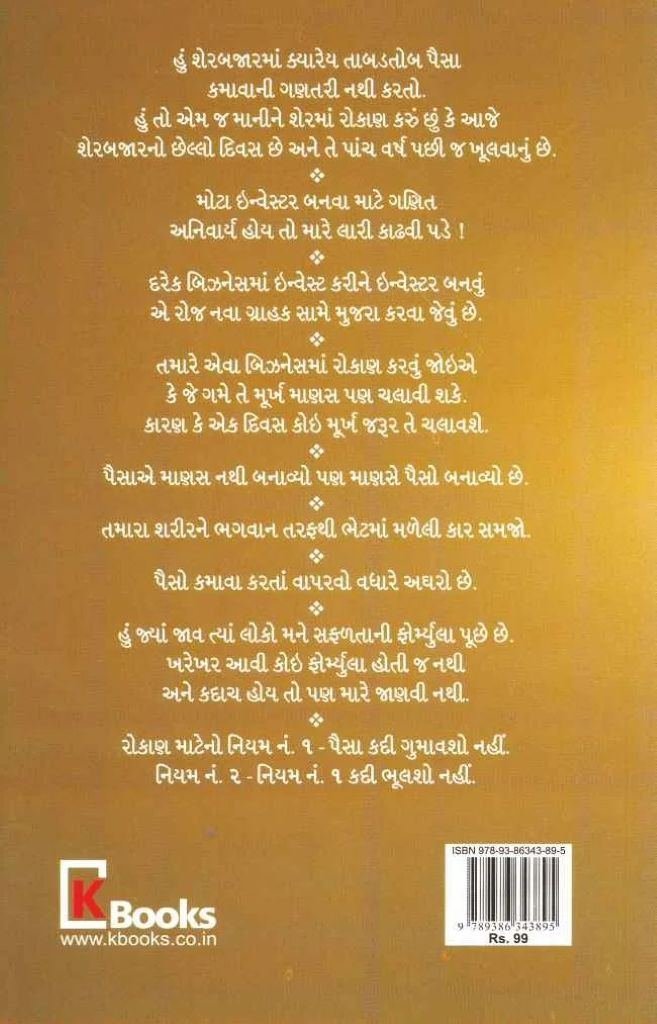 હું શેરબજારમાં ક્યારેય તાબડતોબ પૈસા
કમાવાની ગણતરી નથી કરતો.
હું તો એમ જ માનીને શેરમાં રોકાણ કરું છું કે આજે
શેરબજારનો છેલ્લો દિવસ છે અને તે પાંચ વર્ષ પછી જ ખૂલવાનું છે.
❖
મોટા ઇન્વેસ્ટર બનવા માટે ગણિત
અનિવાર્ય હોય તો મારે લારી કાઢવી પડે !
❖
દરેક બિઝનેસમાં ઇન્વેસ્ટ કરીને ઇન્વેસ્ટર બનવું
એ રોજ નવા ગ્રાહક સામે મુજરા કરવા જેવું છે.
❖
તમારે એવા બિઝનેસમાં રોકાણ કરવું જોઇએ
કે જે ગમે તે મૂર્ખ માણસ પણ ચલાવી શકે.
કારણ કે એક દિવસ કોઇ મૂર્ખ જરૂર તે ચલાવશે.
❖
પૈસાએ માણસ નથી બનાવ્યો પણ માણસે પૈસો બનાવ્યો છે.
❖
તમારા શરીરને ભગવાન તરફથી ભેટમાં મળેલી કાર સમજો.
❖
પૈસો કમાવા કરતાં વાપરવો વધારે અઘરો છે.
❖
હું જ્યાં જાવ ત્યાં લોકો મને સફળતાની ફોર્મ્યુલા પૂછે છે.
ખરેખર આવી કોઇ ફોર્મ્યુલા હોતી જ નથી
અને કદાચ હોય તો પણ મારે જાણવી નથી.
❖
રોકાણ માટેનો નિયમ નં. ૧ - પૈસા કદી ગુમાવશો નહીં.
નિયમ નં. ૨ - નિયમ નં. ૧ કદી ભૂલશો નહીં.
ISBN 978-93-86343-89-5
9 789386 343895
Rs. 99
K Books
www.kbooks.co.in